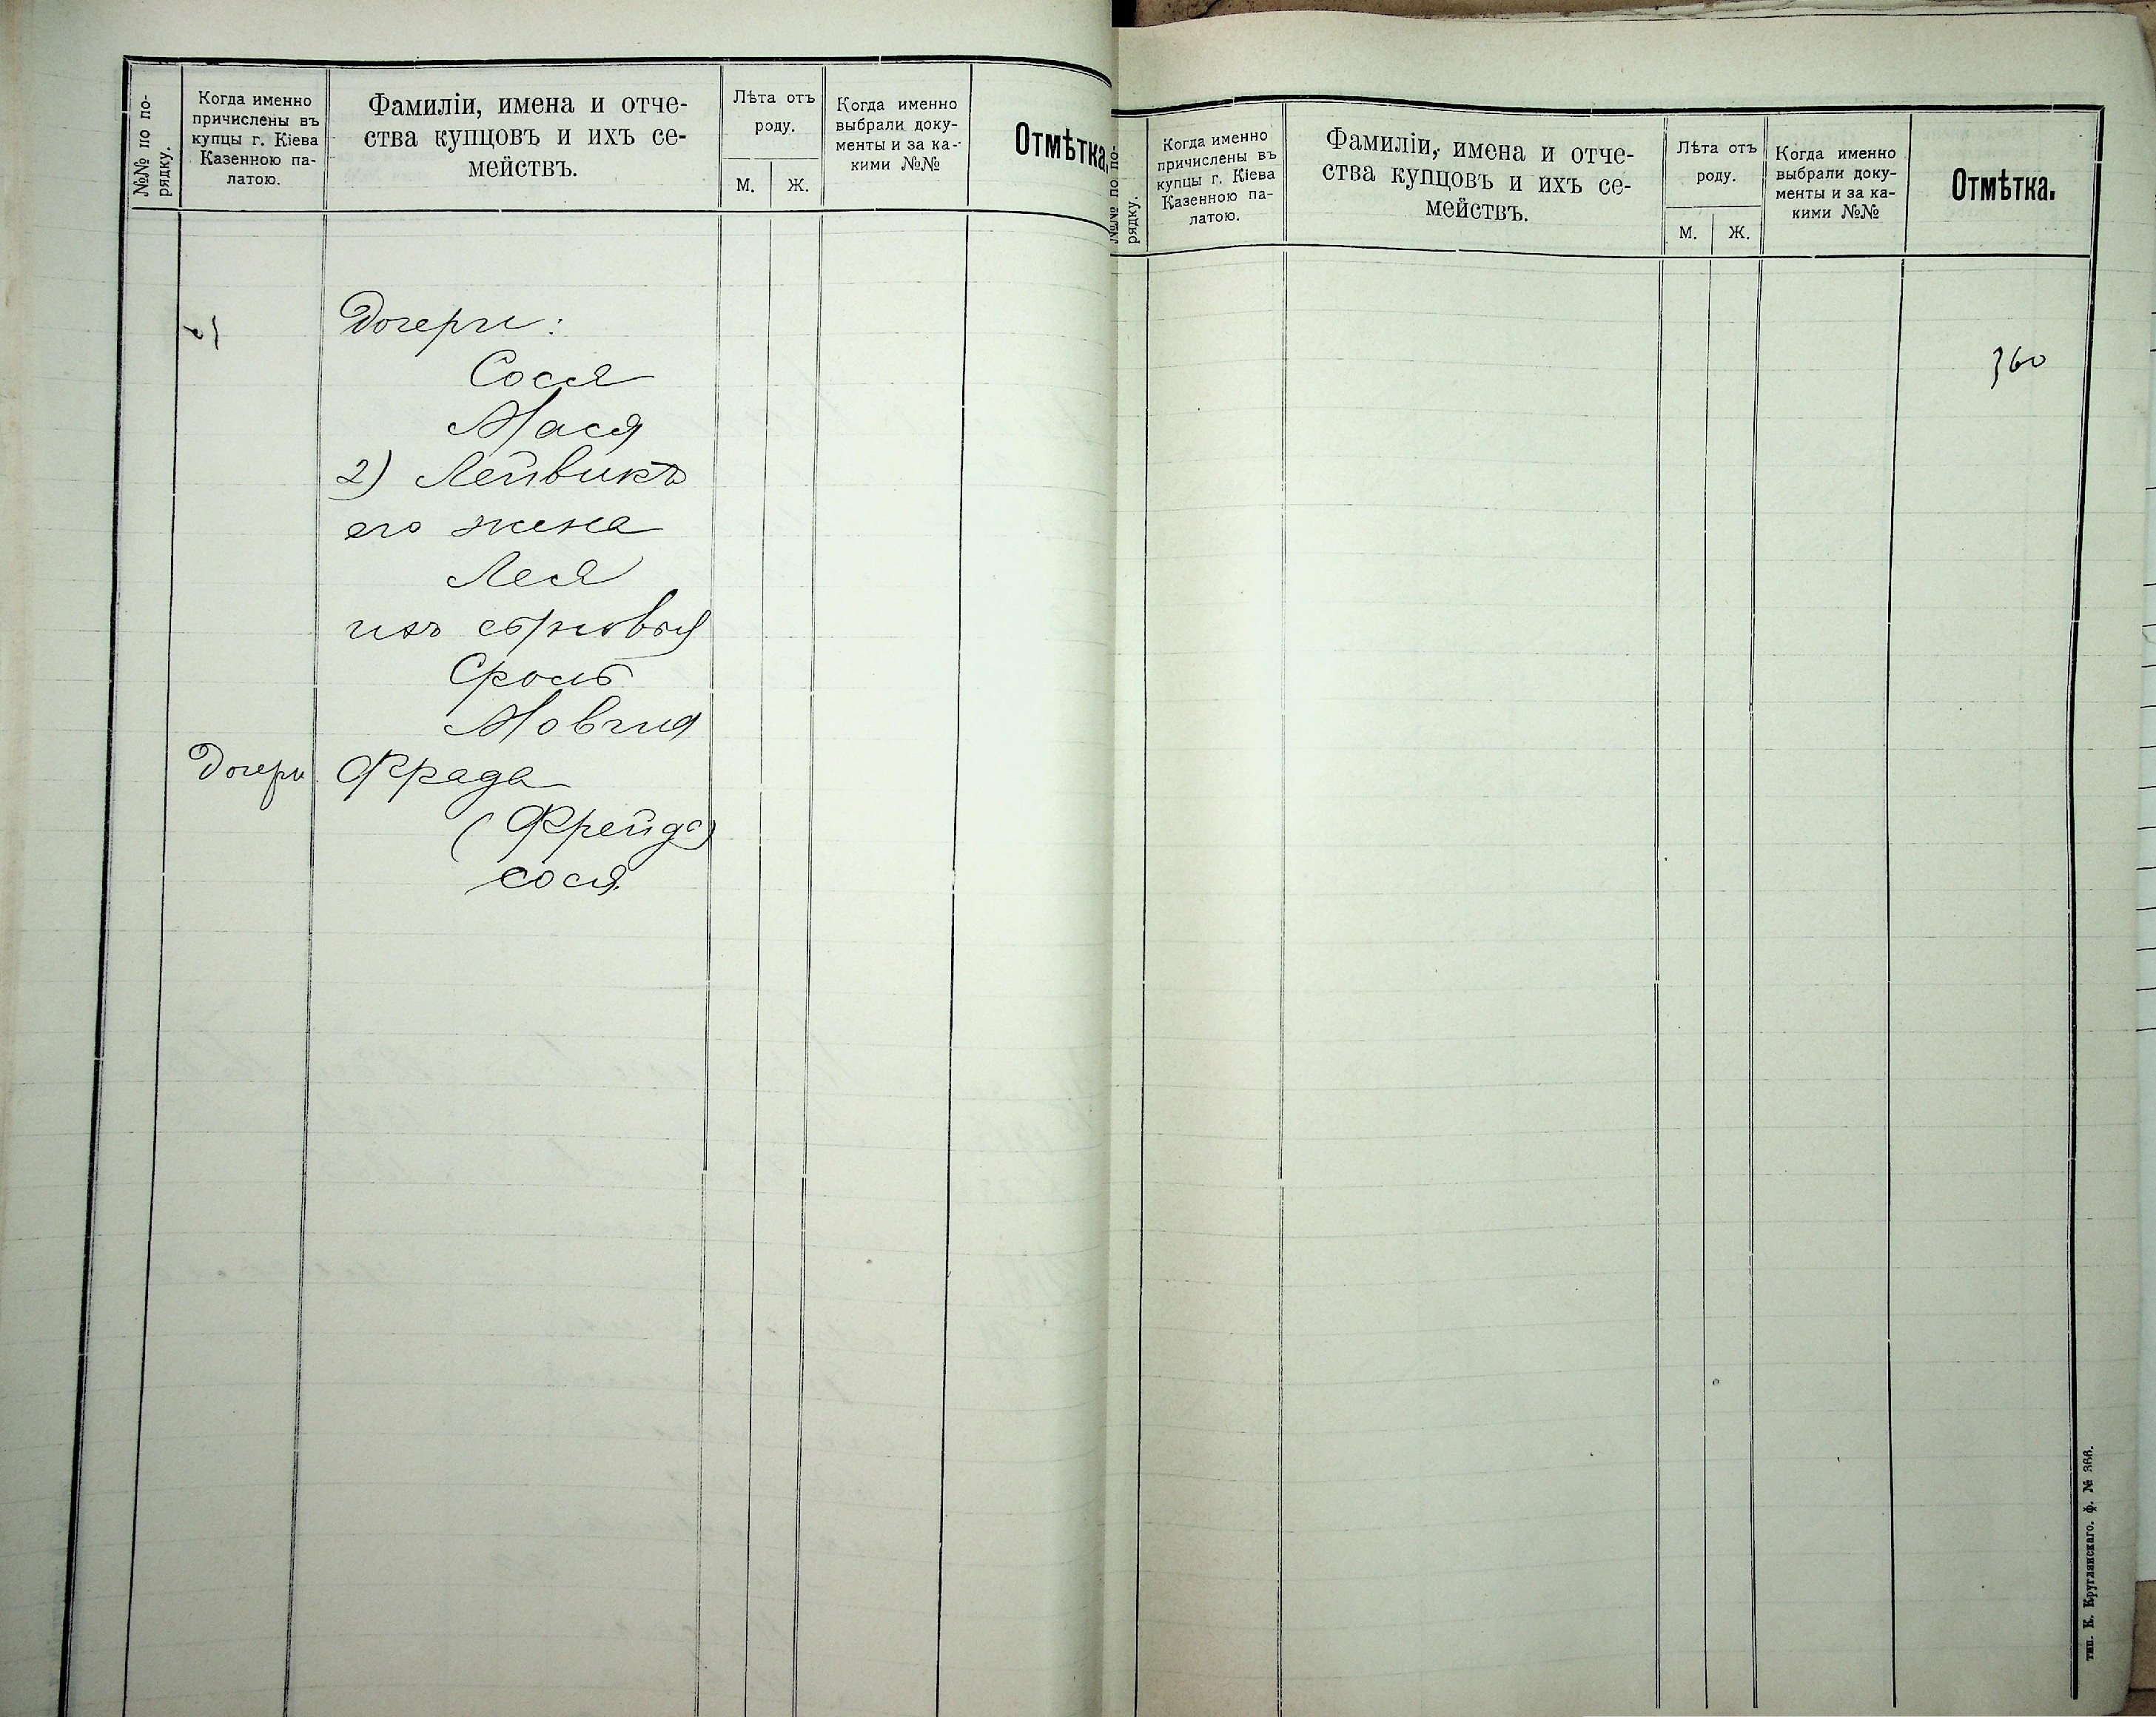 №№ по по-
рядку.
Когда именно
причислены въ
купцы г. Кіева
Казенною па-
латою.
Фамиліи, имена и отче-
ства купцовъ и ихъ се-
мействъ.
Лѣта отъ
роду.
М.
Ж.
Когда именно
выбрали доку-
менты и за ка-
кими №№
Отмѣтка.
Дочери:
Сося
Мася
2) Лейвикъ
его жена
Лея
ихъ сыновья
Сроль
Мовша
Дочери Фрада
(Фрейда)
Сося
№№ по по-
рядку.
Когда именно
причислены въ
купцы г. Кіева
Казенною па-
латою.
Фамиліи, имена и отче-
ства купцовъ и ихъ се-
мействъ.
Лѣта отъ
роду.
М.
Ж.
Когда именно
выбрали доку-
менты и за ка-
кими №№
Отмѣтка.
360
тип. К. Круглянскаго. ф. № 366.